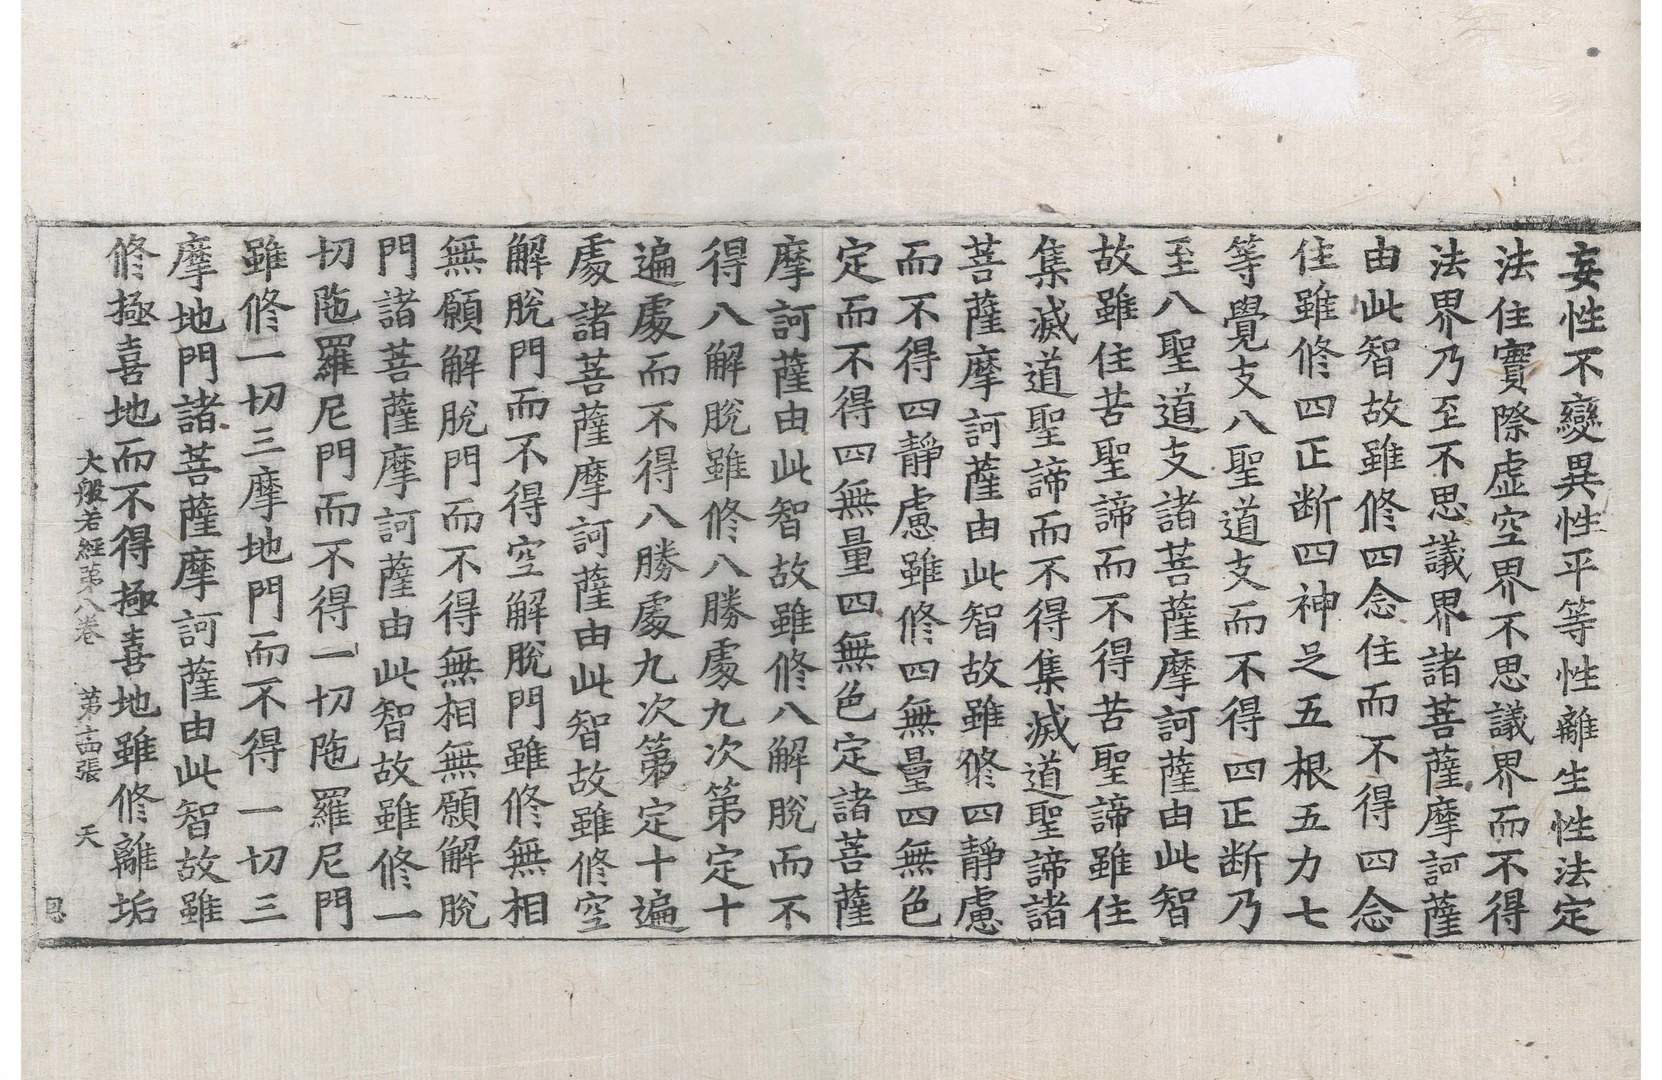 妄性不變異性平等性離生性法定
法住實際虛空界不思議界而不得
法界乃至不思議界諸菩薩摩訶薩
由此智故雖修四念住而不得四念
住雖修四正断四神足五根五力七
等覺支八聖道支而不得四正断乃
至八聖道支諸菩薩摩訶薩由此智
故雖住苦聖諦而不得苦聖諦雖住
集滅道聖諦而不得集滅道聖諦諸
菩薩摩訶薩由此智故雖修四靜慮
而不得四靜慮雖修四無量四無色
定而不得四無量四無色定諸菩薩
摩訶薩由此智故雖修八解脫而不
得八解脫雖修八勝處九次第定十
遍處而不得八勝處九次第定十遍
處諸菩薩摩訶薩由此智故雖修空
解脫門而不得空解脫門雖修無相
無願解脫門而不得無相無願解脫
門諸菩薩摩訶薩由此智故雖修一
切陁羅尼門而不得一切陁羅尼門
雖修一切三摩地門而不得一切三
摩地門諸菩薩摩訶薩由此智故雖
修極喜地而不得極喜地雖修離垢
大般若經第八卷 第十四張 天